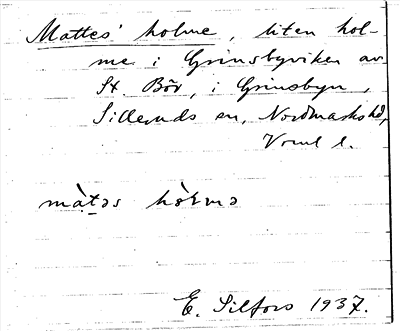 Mattes' holme, liten hol-
me i Grinsbyviken av
St. Bör, i Grinsbyn,
Silleruds sn, Nordmarks hd,
Vrml l.
màt̠əs hòɫmə
E. Silfors 1937.